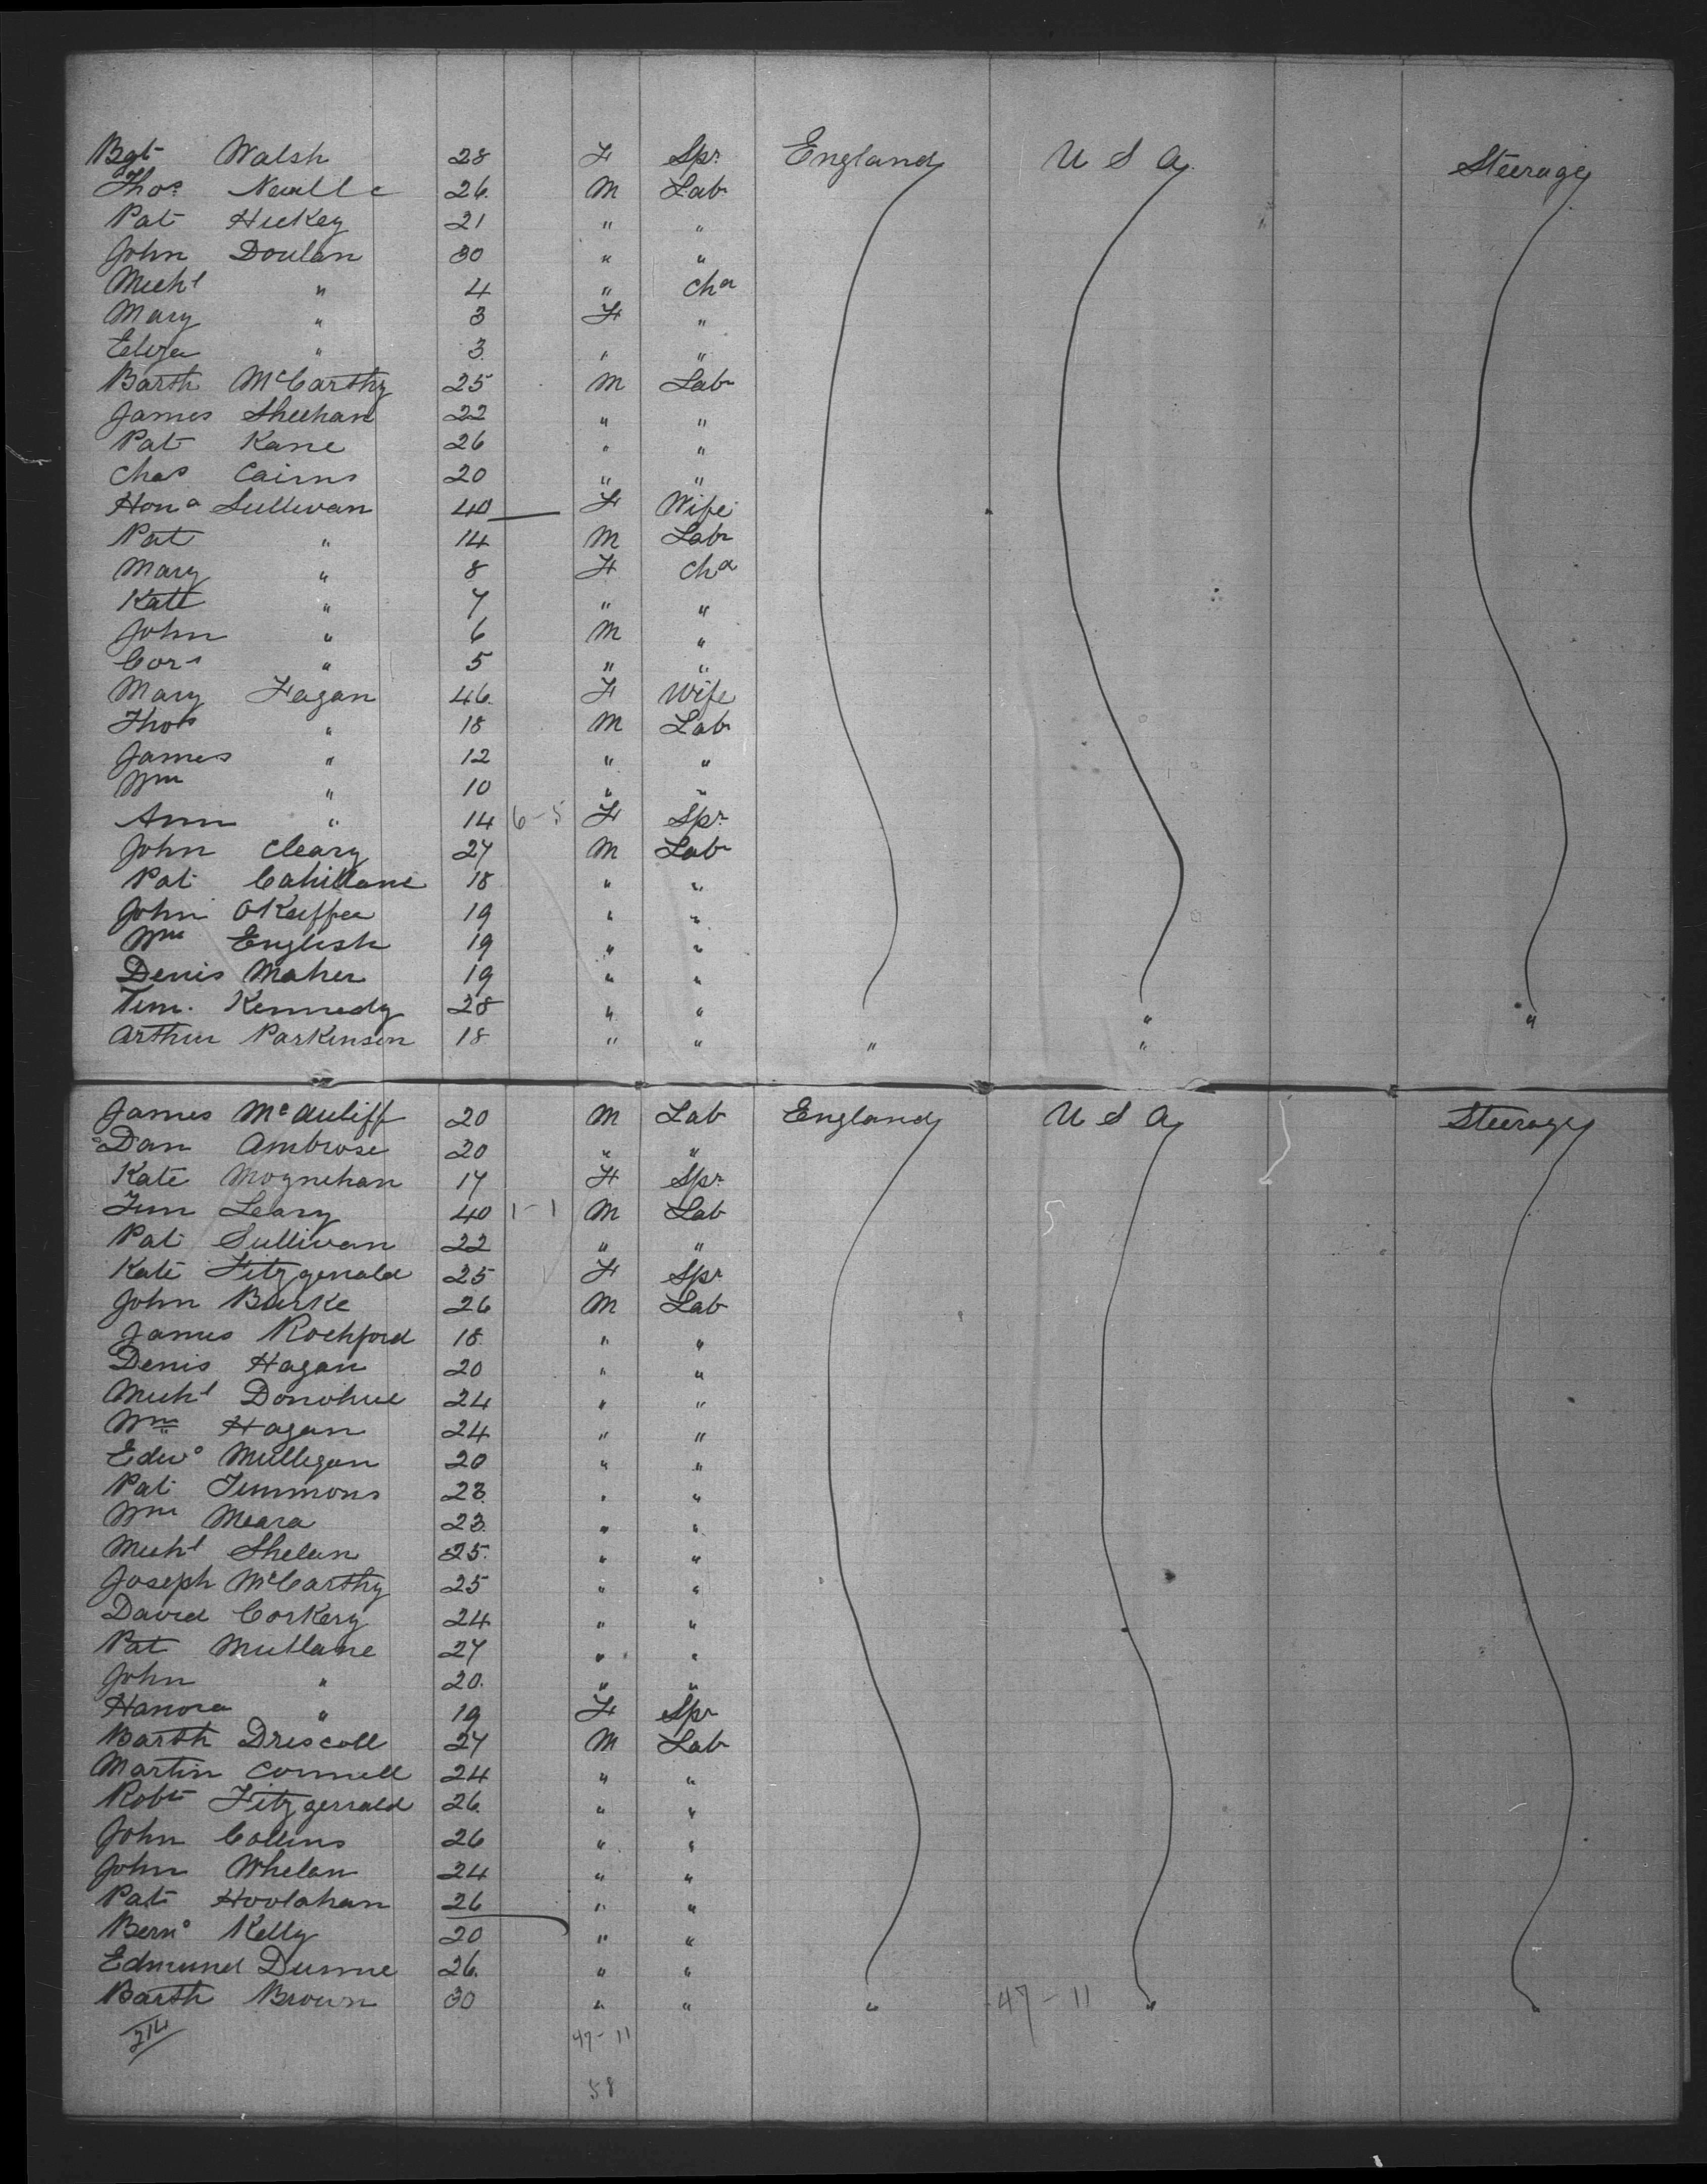 Bgt Walsh 28 F Spr England U S A Steerage
Thos Neville 26 M Lab
Pat Hickey 21 " "
John Doulan 30 " "
Michl " 4 " Chd
Mary " 3 F "
Eliza " 3 " "
Barth McCarthy 25 M Lab
James Sheehan 22 " "
Pat Kane 26 " "
Chas Cairns 20 " "
Hona Sullivan 40 F Wife
Pat " 14 M Lab
Mary " 8 F Chd
Kate " 7 " "
John " 6 M "
Cors " 5 " "
Mary Fagan 46 F Wife
Thos " 18 M Lab
James " 12 " "
Wm " 10 " "
Ann " 14 6-5 F Spr
John Cleary 27 M Lab
Pat Cahillane 18 " "
John OKeiffee 19 " "
Wm English 19 " "
Denis Maher 19 " "
Tim. Kennedy 28 " " " "
Arthur Parkinson 18 " " " "
James McAuliff 20 M Lab England U S A Steerage
Dan Ambrose 20 " "
Kate Moynehan 17 F Spr
Jim Leary 40 1-1 M Lab
Pat Sullivan 22 " "
Kate Fitzgerald 25 F Spr
John Burke 26 M Lab
James Rochford 18 " "
Denis Hagan 20 " "
Michl Donohue 24 " "
Wm Hagan 24 " "
Edwd Mulligan 20 " "
Pat Timmons 23 " "
Wm Meara 23 " "
Michl Shelan 25 " "
Joseph McCarthy 25 " "
David Corkery 24 " "
Pat Mullane 27 " "
John " 20 " "
Hanora " 19 F Spr
Barth Driscoll 27 M Lab
Martin Connell 24 " "
Robt Fitzgerrald 26 " "
John Collins 26 " "
John Whelan 24 " "
Pat Hoolahan 26 " "
Bernd Kelly 20 " "
Edmund Dunne 26 " "
Barth Brown 30 " " " 47-11 " "
47-11
58